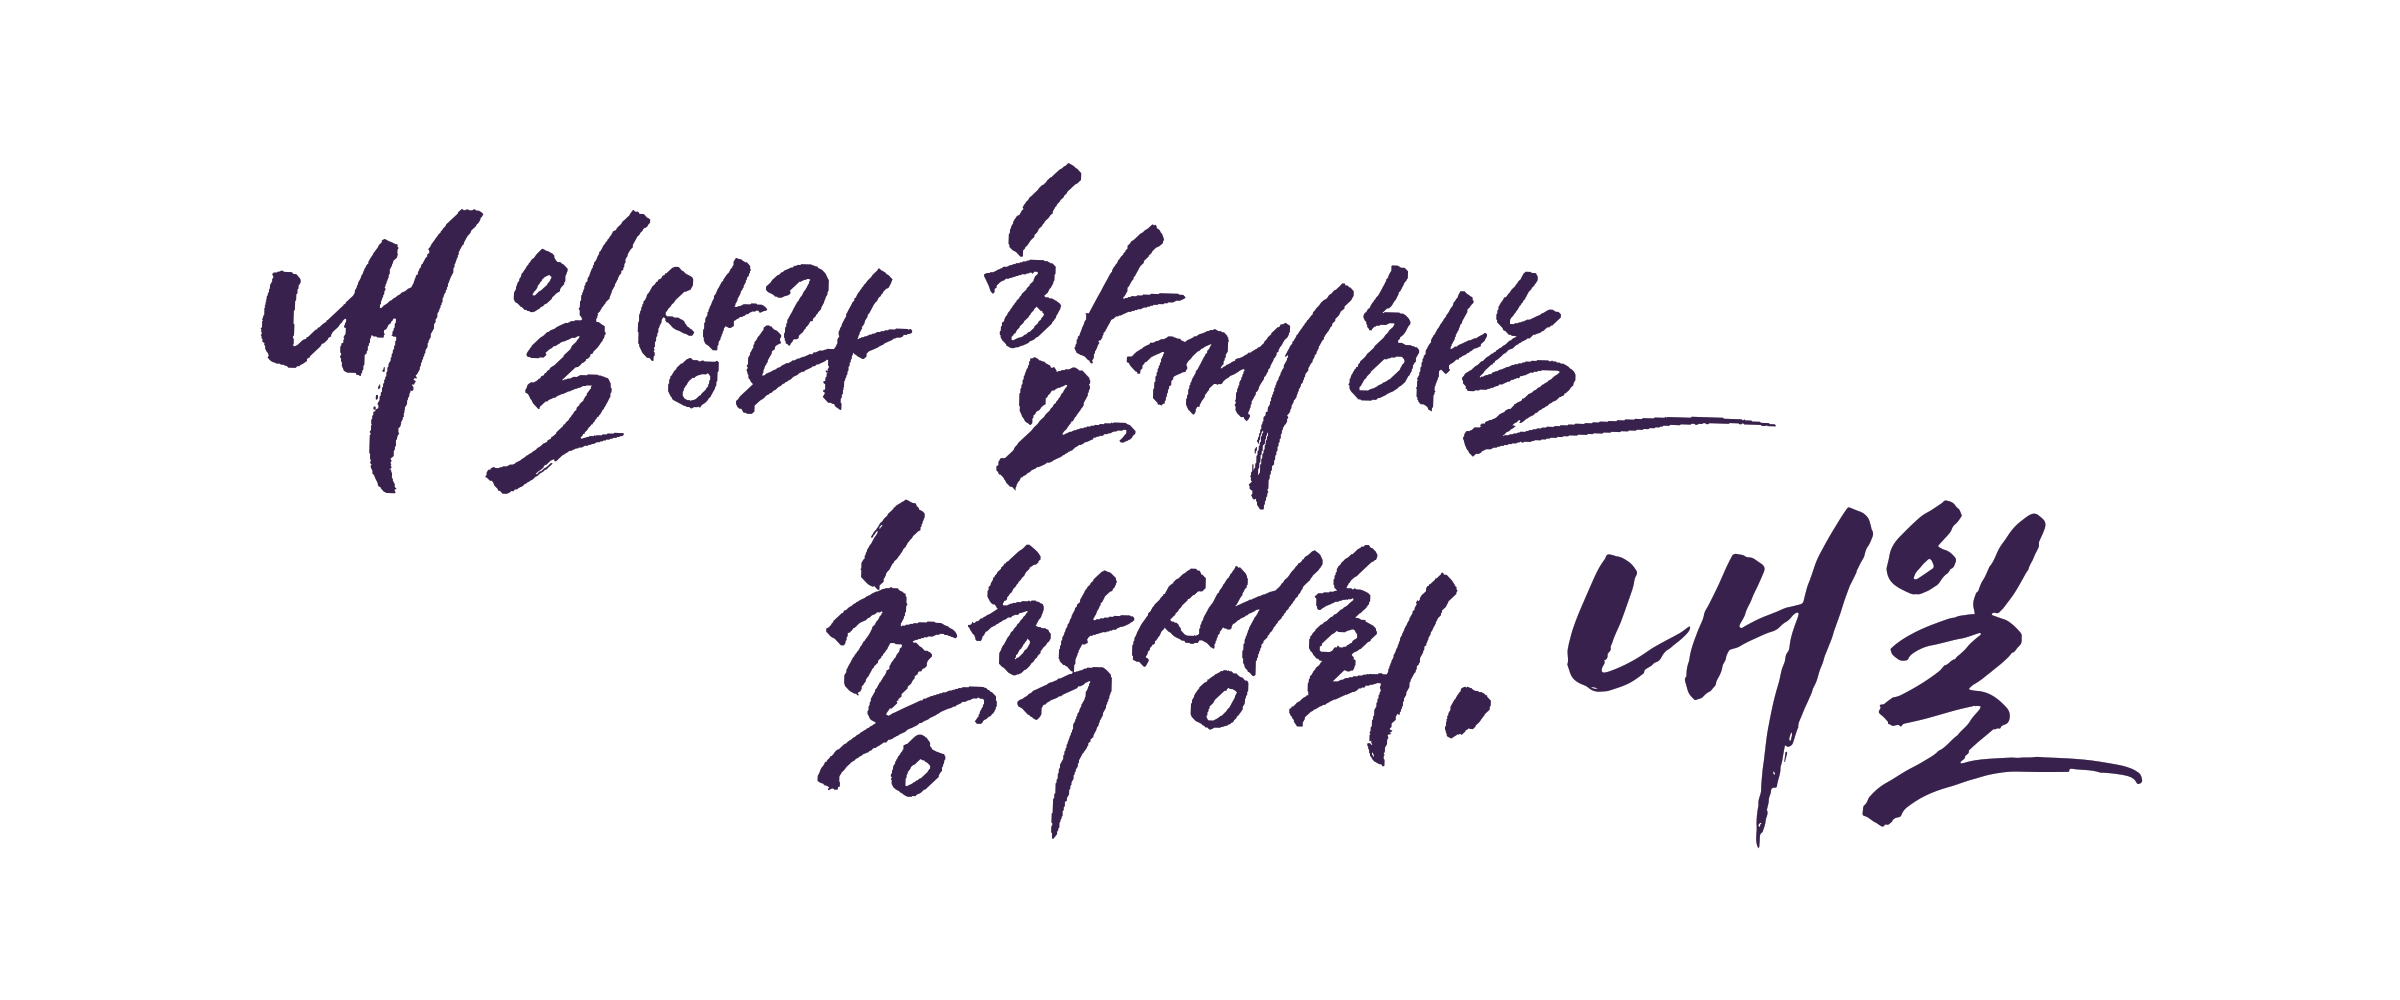 내 일상과 함께하는
총학생회. 내일